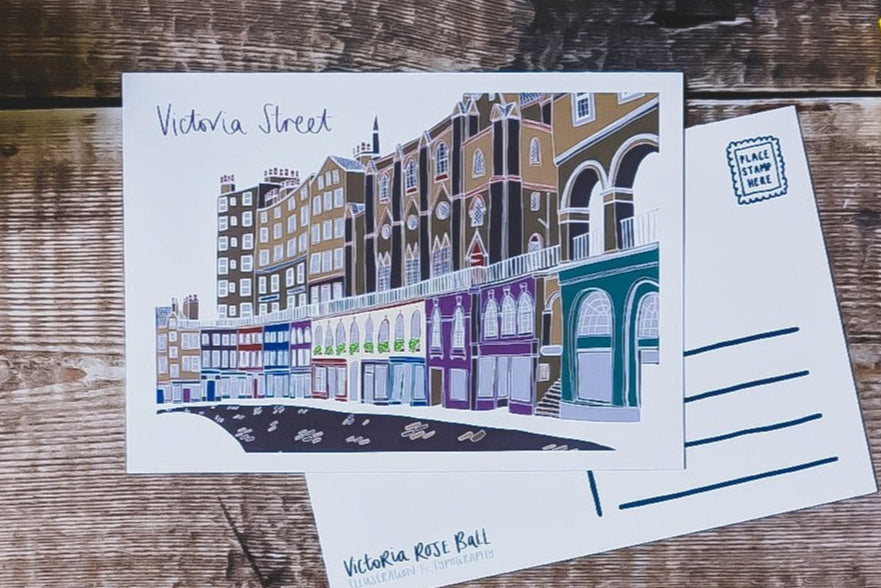 Victoria Street
PLACE
STAMP
HERE
VICTORIA ROSE BALL
ILLUSTRATION & TYPOGRAPHY